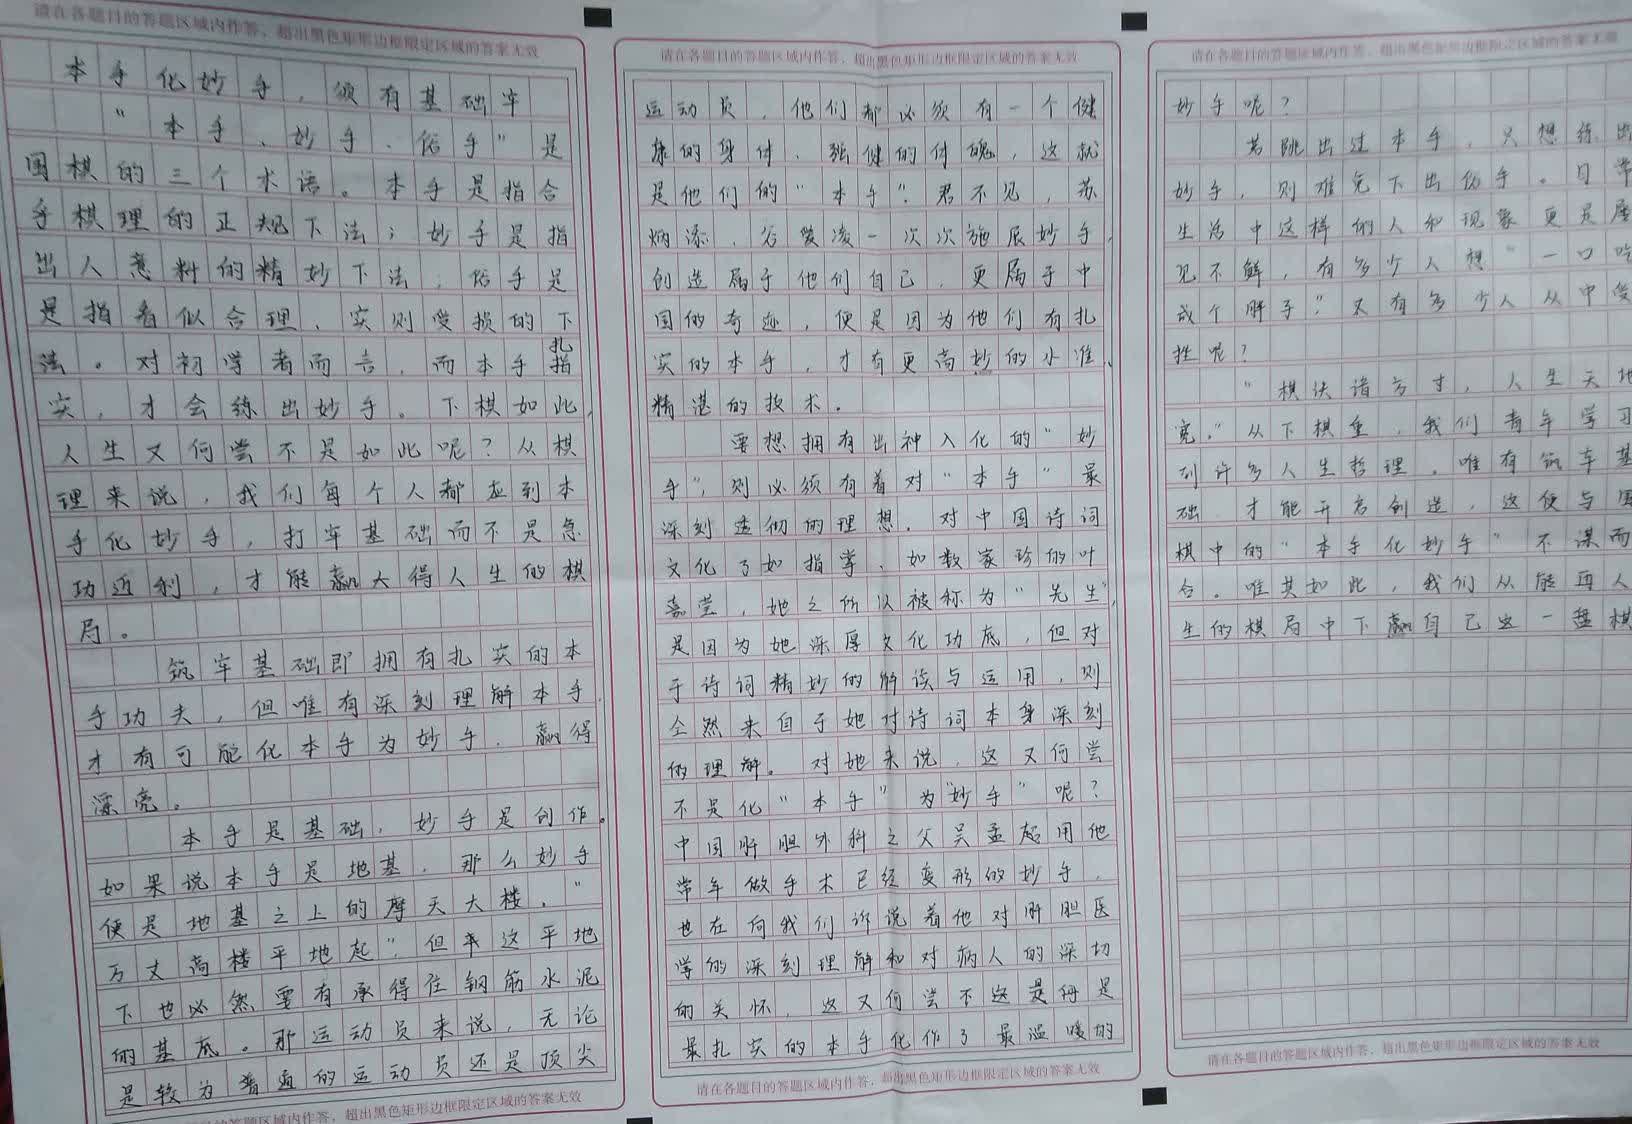 请在各题目的答题区域内作答，超出黑色矩形边框限定区域的答案无效
本手化妙手，须有基础牢
“本手、妙手、俗手”是
围棋的三个术语。本手是指合
乎棋理的正规下法；妙手是指
出人意料的精妙下法；俗手是
是指看似合理、实则受损的下
法。对初学者而言，而本手扎
实，才会练出妙手。下棋如此，
人生又何尝不是如此呢？从棋
理来说，我们每个人都应到本
手化妙手，打牢基础而不是急
功近利，才能赢大得人生的棋
局。
筑牢基础即拥有扎实的本
手功夫，但唯有深刻理解本手，
才有可能化本手为妙手，赢得
漂亮。
本手是基础，妙手是创作。
如果说本手是地基，那么妙手
便是地基之上的摩天大楼，“
万丈高楼平地起”，但在这平地
下也必然要有承得住钢筋水泥
的基底。那运动员来说，无论
是较为普通的运动员还是顶尖
答题区域内作答，超出黑色矩形边框限定区域的答案无效
请在各题目的答题区域内作答，超出黑色矩形边框限定区域的答案无效
运动员，他们都必须有一个健
康的身体、强健的体魄，这就
是他们的“本手”。君不见，苏
炳添、谷爱凌一次次施展妙手，
创造属于他们自己、更属于中
国的奇迹，便是因为他们有扎
实的本手，才有更高妙的水准、
精湛的技术。
要想拥有出神入化的“妙
手”，则必须有着对“本手”最
深刻透彻的理想。对中国诗词
文化了如指掌、如数家珍的叶
嘉莹，她之所以被称为“先生”，
是因为她深厚文化功底，但对
于诗词精妙的解读与运用，则
全然来自于她对诗词本身深刻
的理解。对她来说，这又何尝
不是化“本手”为“妙手”呢？
中国肝胆外科之父吴孟超用他
常年做手术已经变形的妙手，
也在向我们诉说着他对肝胆医
学的深刻理解和对病人的深切
的关怀，这又何尝不这是
最扎实的本手化作了最温暖的
请在各题目的答题区域内作答，超出黑色矩形边框限定区域的答案无效
请在各题目的答题区域内作答，超出黑色矩形边框限定区域的答案无效
妙手呢？
若跳出过本手，只想练出
妙手，则难免下出俗手。日常
生活中这样的人和现象更是屡
见不鲜，有多少人想“一口吃
成个胖子？又有多少人从中受
挫呢？
“棋伏诸方寸，人生天地
宽。”从下棋里，我们青年学习
到许多人生哲理。唯有筑牢基
础 才能开启创造，这便与围
棋中的“本手化妙手”不谋而
合。唯其如此，我们从能再人
生的棋局中下赢自己这一盘棋
请在各题目的答题区域内作答，超出黑色矩形边框限定区域的答案无效